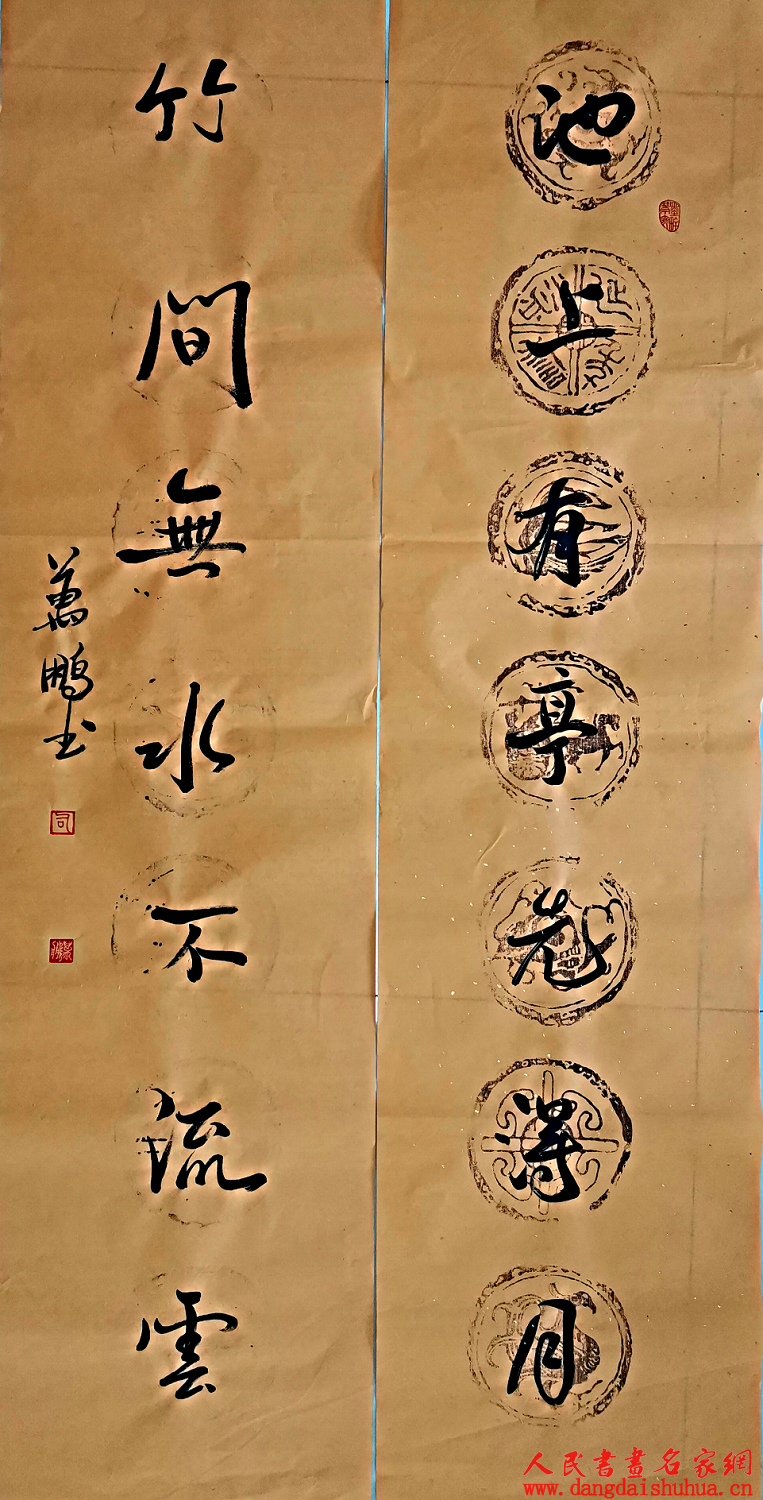 池上有亭先得月
竹間無水不流雲
萬鵬书
人民書畫名家網
www.dangdaishuhua.cn